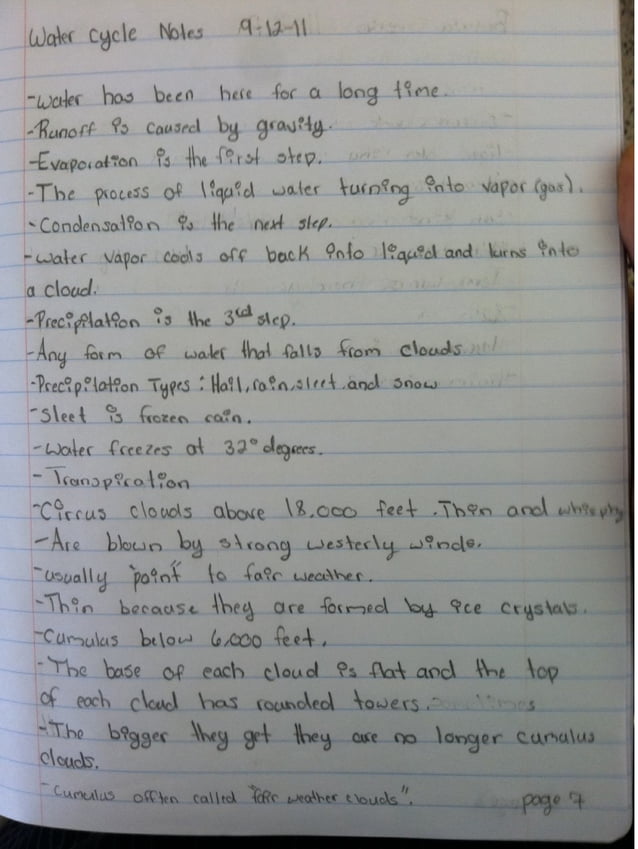 Water cycle Notes 9-12-11
-Water has been here for a long time.
-Runoff is caused by gravity.
-Evaporation is the first step.
-The process of liquid water turning into vapor (gas).
-Condensation is the next step.
-Water vapor cools off back into liquid and turns into
a cloud.
-Precipitation is the 3rd step.
-Any form of water that falls from clouds
-Precipitation Types: Hail, rain, sleet and snow
-Sleet is frozen rain.
-Water freezes at 32° degrees.
-Transpiration
-Cirrus clouds above 18,000 feet. Thin and
-Are blown by strong westerly winds.
-usually "point" to fair weather.
-Thin because they are formed by ice crystals.
-Cumulus below 6,000 feet.
-The base of each cloud is flat and the top
of each cloud has rounded towers.
-The bigger they get they are no longer cumulus
clouds.
-Cumulus offten called "fair weather clouds".
page 7